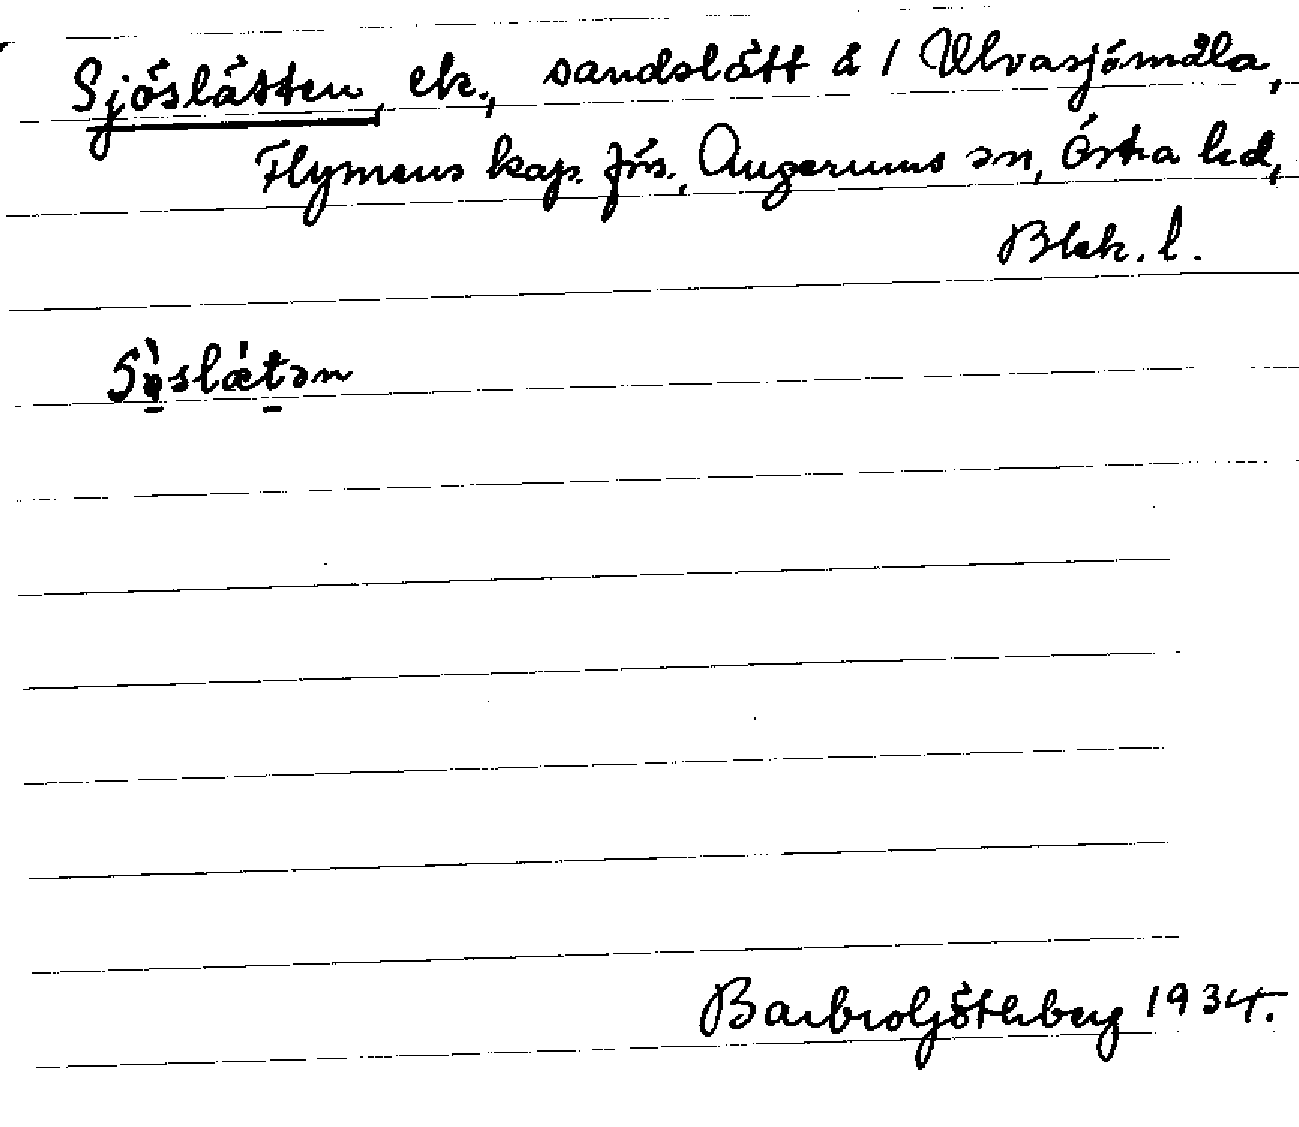 Sjöslätten, ek., sandslätt å 1 Ulvasjömåla,
Flymens kap. förs., Augerums sn, Östra hd,
Blek. l.
slætən
Barbro Götherberg 1934.